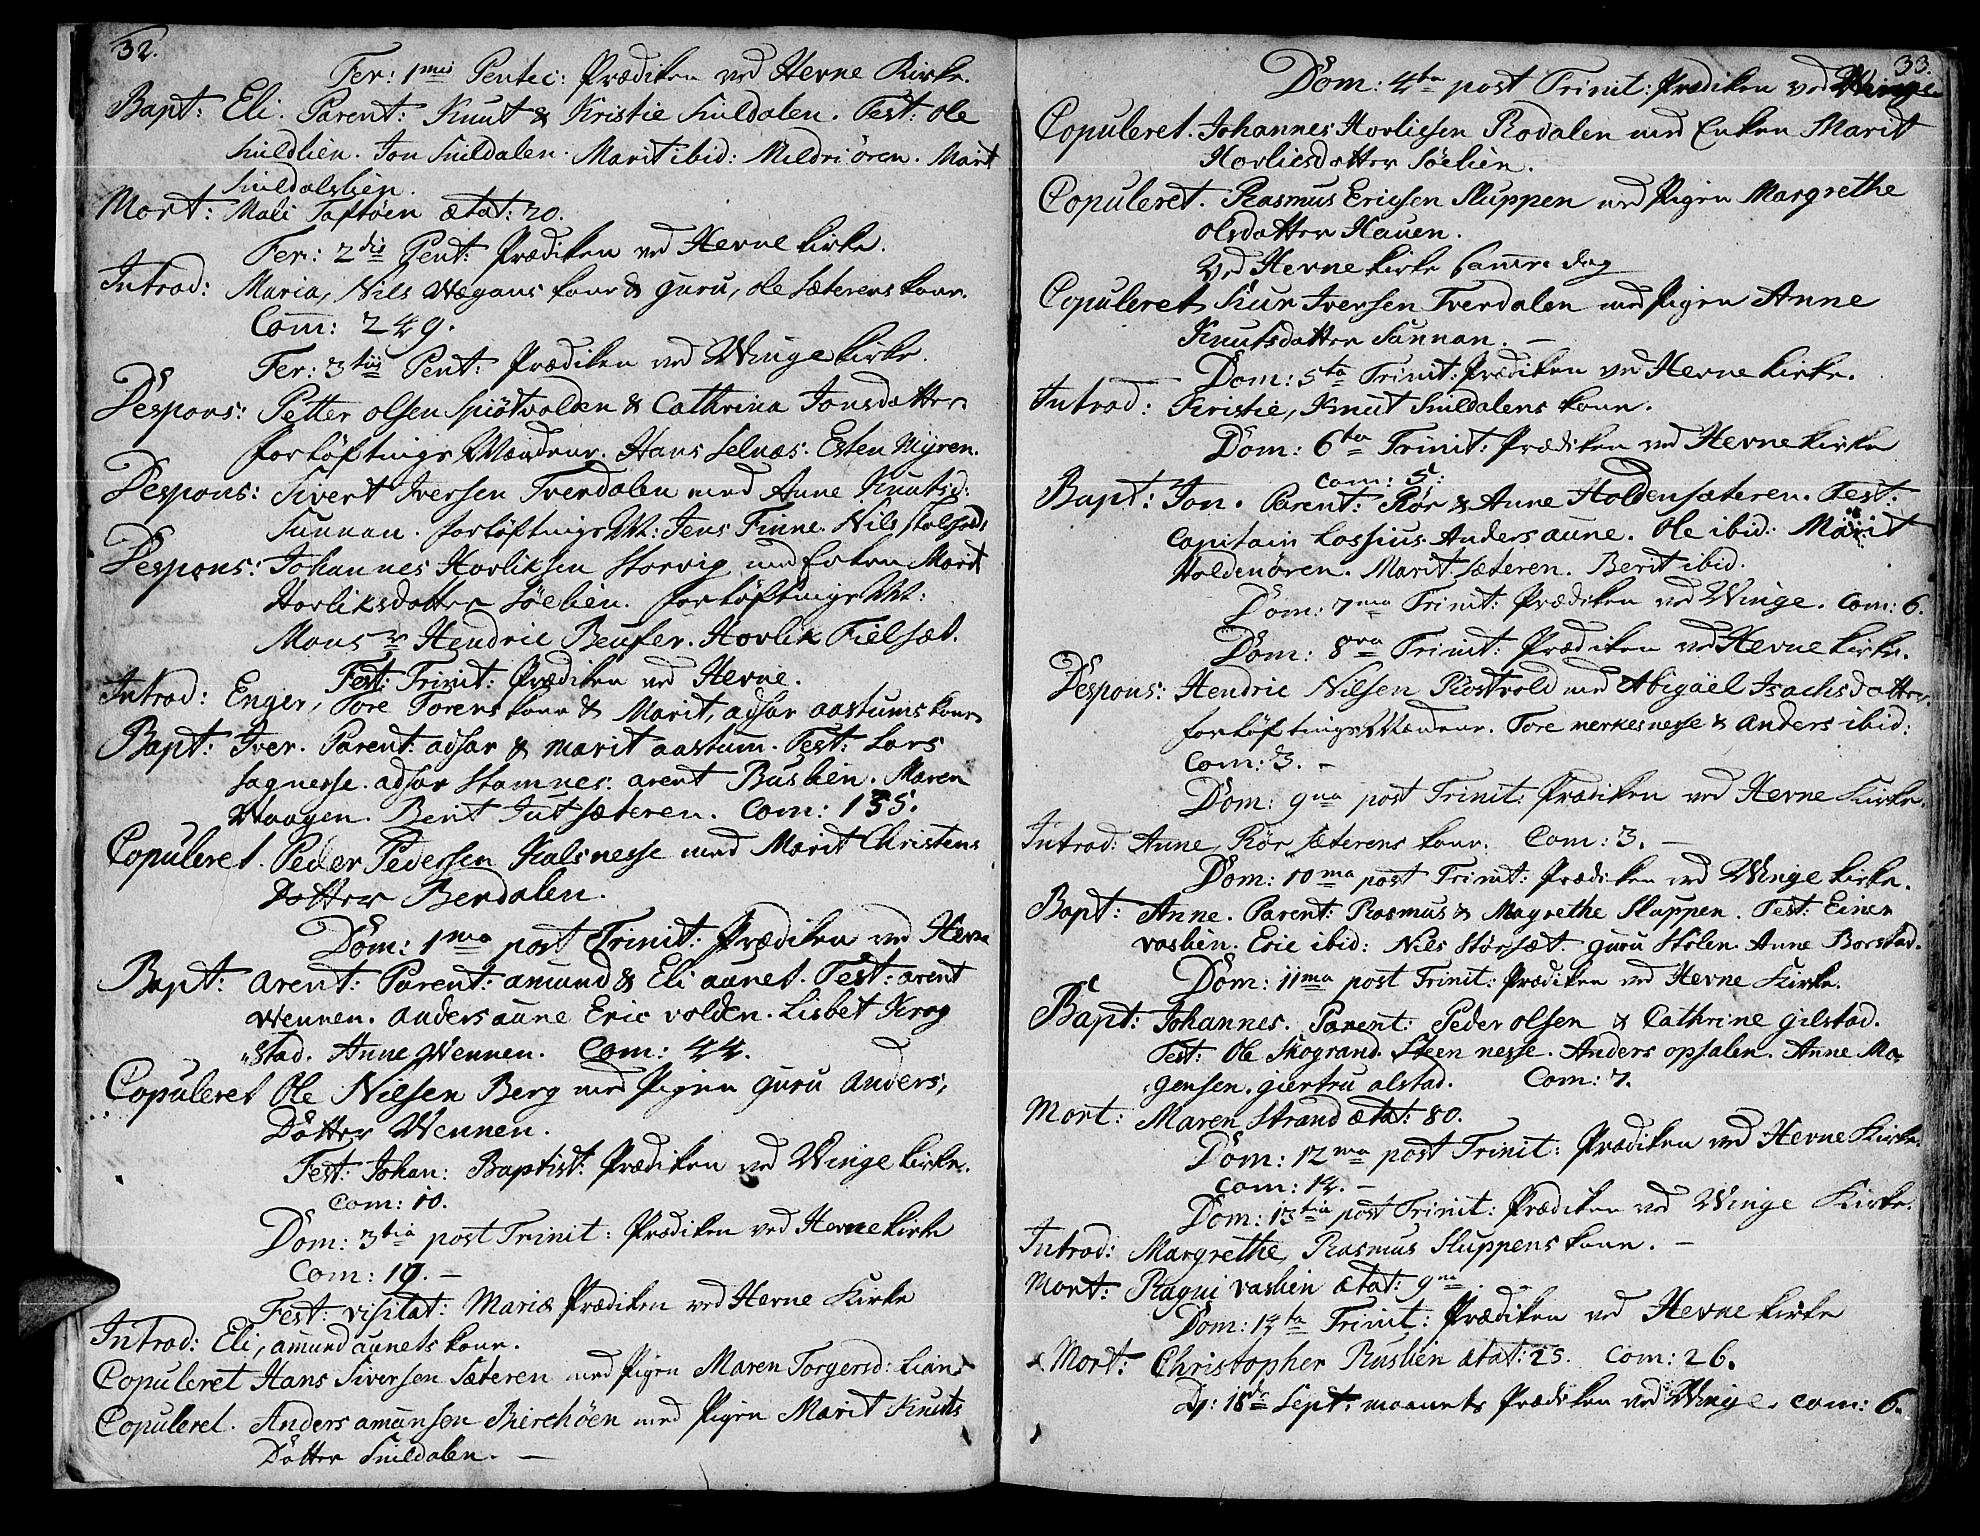 32.
Fer: 1mis Pentec: Prædiken ved Hevne Kirke.
Bapt: Eli. Parent: Knut & Kristie Snildalen. Test: Ole
Snildlien. Jon Snildalen. Marit ibid: Mildri ören. Marit
Snildalslien.
Mort: Mali Taftöen ætat: 20.
Fer: 2dis Pent: Prædiken ved Hevne Kirke.
Introd: Maria, Nils Wægans kone & guru, ole Sæterens kone.
Com: 249.
Fer: 3tiis Pent: Prædiken ved Winge Kirke.
Despons: Petter olsen Spiötvolden & Cathrina Jonsdatter.
forløftnings Mændene. Hans Selnæs. Esten Myren.
Despons: Sivert Iversen Tverdalen med Anne Knutsd:
Sunnan. forløftnings M: Jens Finne. Nils
Despons: Johannes Horliksen Storvig med Enken Marit
Horliksdatter Söelien. forløftnings M:
Monsr Hendric Beufer. Horlik Fielsæt.
Fest: Trinit: Prædiken ved Hevne.
Introd: Enger, Tore Torens kone & Marit, adsar aastums kone
Bapt: Iver. Parent: adsar & marit aastum. Test: Lars
Sagnesse. adsar Stamnes. arent Buslien. Maren
Waagen. Berit Jutsæteren. Com: 135.
Copuleret. Peder Pedersen Kalsnesse med Marit Christens
Datter Berdalen.
Dom: 1ma post Trinit: Prædiken ved Hevne
Bapt: arent: Parent: amund & Eli aunet. Test: arent
Wennen. anders aune Eric volden. Lisbet Krog
stad. Anne Wennen. Com: 44.
Copuleret Ole Nilsen Berg med Pigen guru anders,
Datter Wennen.
Fest: Johan: Baptist: Prædiken ved Winge kirke.
Com: 10.
Dom: 3tia post Trinit: Prædiken ved Hevne kirke
Com: 19. –
Fest: visitat: Mariæ Prædiken ved Hevne Kirke
Introd: Eli, amund aunets kone.
Copuleret Hans Siversen Sæteren med Pigen Maren Torgersd: Lian
Copuleret. Anders amunsen Bierchöen med Pigen Marit Knuts
Datter Snildalen. –
33.
Dom: 4ta post Trinit: Prædiken ved Winge
Copuleret. Johannes Horlicsen Rodalen med Enken Marit
Horlicsdatter Söelien.
Copuleret. Rasmus Ericsen Sluppen med Pigen Margrethe
olsdatter Hauen.
Ved Hevne kirke samme dag
Copuleret Siur Iversen Tverdalen med Pigen Anne
Knutsdatter Sunnan. –
Dom: 5ta Trinit: Prædiken ved Hevne kirke.
Introd: Kristie, Knut Snildalens kone.
Dom: 6ta Trinit: Prædiken ved Hevne kirke
Com: 5:
Bapt: Jon. Parent: Rör & Anne Holdensæteren. Test:
Capitain Lossius. Anders aune. Ole ibid: Marit
Holdenören. Marit Sæteren. Berit ibid.
Dom: 7ma Trinit: Prædiken ved Winge. Com: 6.
Dom: 8va Trinit: Prædiken ved Hevne kirke.
Despons: Hendric Nilsen Rostvold med Abigäel Isachsdatter.
forløftnings Mændene. Tore merkesnesse & anders ibid:
Com: 3. –
Dom: 9na post Trinit: Prædiken ved Hevne Kirke.
Introd: Anne, Rör Sæterens kone. Com: 3. –
Dom: 10ma post Trinit: Prædiken ved Winge kirke.
Bapt: Anne. Parent: Rasmus & Magrethe Sluppen. Test: Einer
vaslien. Eric ibid: Nils Störsæt. guru Stölen. Anne Borstad.
Dom: 11ma post Trinit: Prædiken ved Hevne Kirke.
Bapt: Johannes. Parent: Peder olsen & Cathrine gilstad.
Test: Ole Skogrand. Steen nesse. Anders opsalen. Anne Mo,
gensen. giertru alstad. Com: 7.
Mort: Maren Strand ætat: 80.
Dom: 12ma post Trinit: Prædiken ved Hevne Kirke.
Com: 14. –
Dom: 13tia post Trinit: Prædiken ved Winge Kirke.
Introd: Margrethe, Rasmus Sluppens kone. –
Mort: Ragni vaslien ætat: 9
Dom: 14ta Trinit: Prædiken ved Hevne kirke
Mort: Christopher Ruslien ætat: 25. Com: 26.
D: 18de Sept: maanets Prædiken ved Winge. Com: 6.